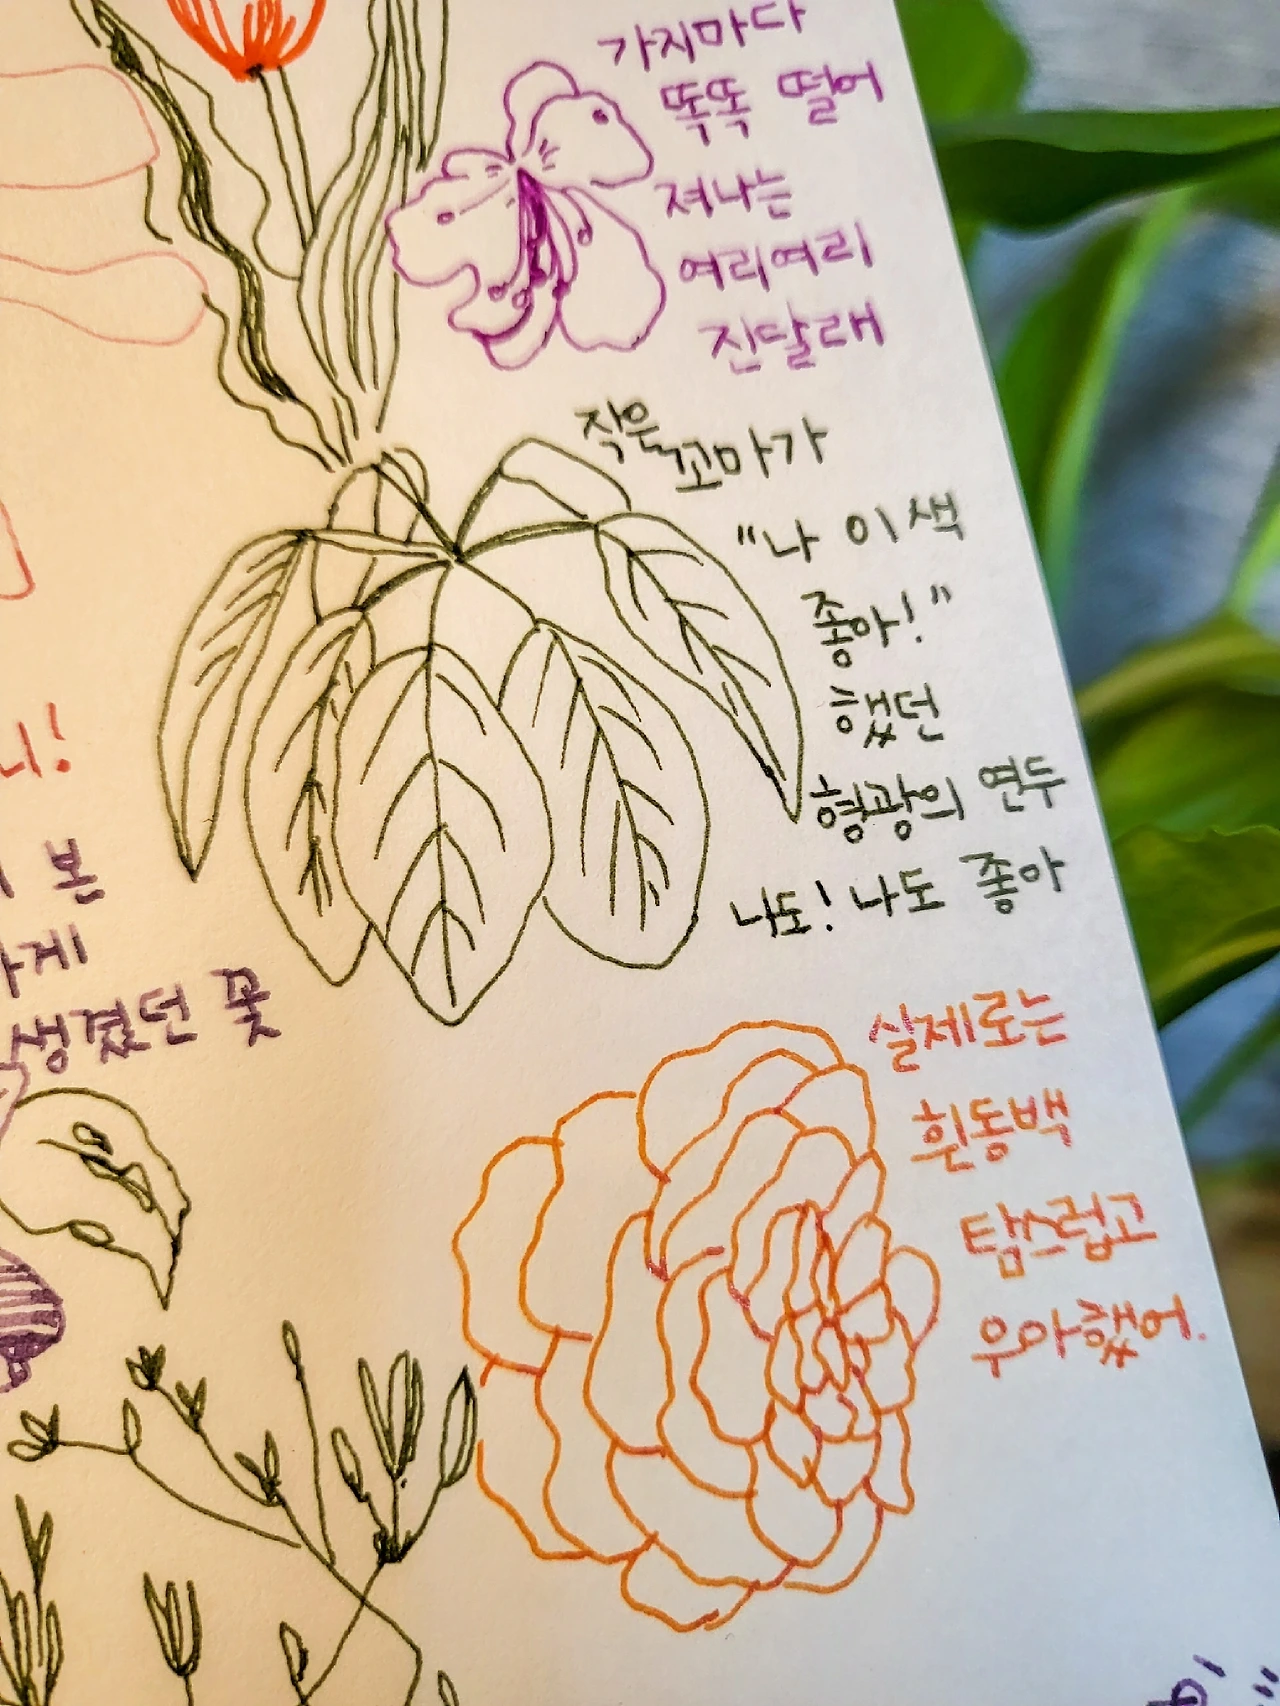 가지마다
똑똑 떨어
져나는
여리여리
진달래
작은 꼬마가
"나 이 색
좋아!"
했던
형광의 연두
나도! 나도 좋아
니!
본
게
생겼던 꽃
실제로는
흰동백
탐스럽고
우아했어.